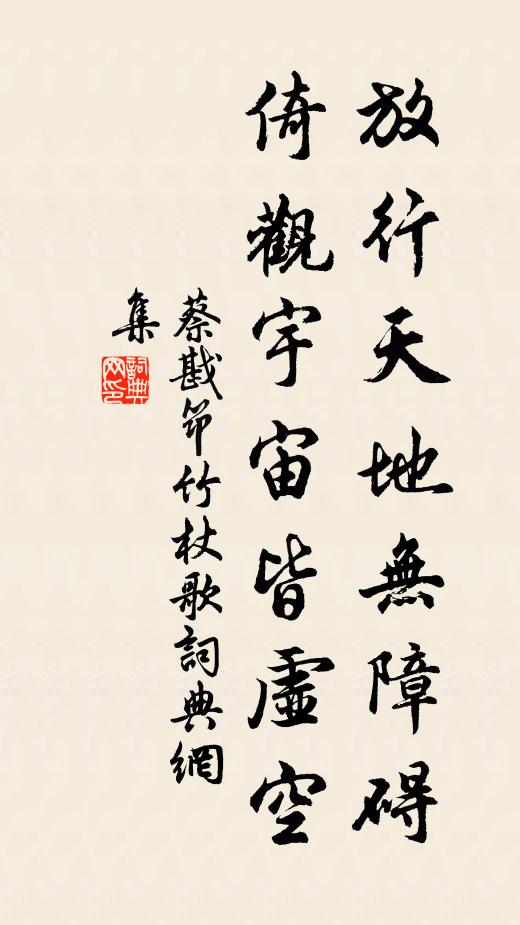 放行天地無障碍
倚觀宇宙皆虛空
蔡戡筇竹杖歌詞典網
集
詞典
网印